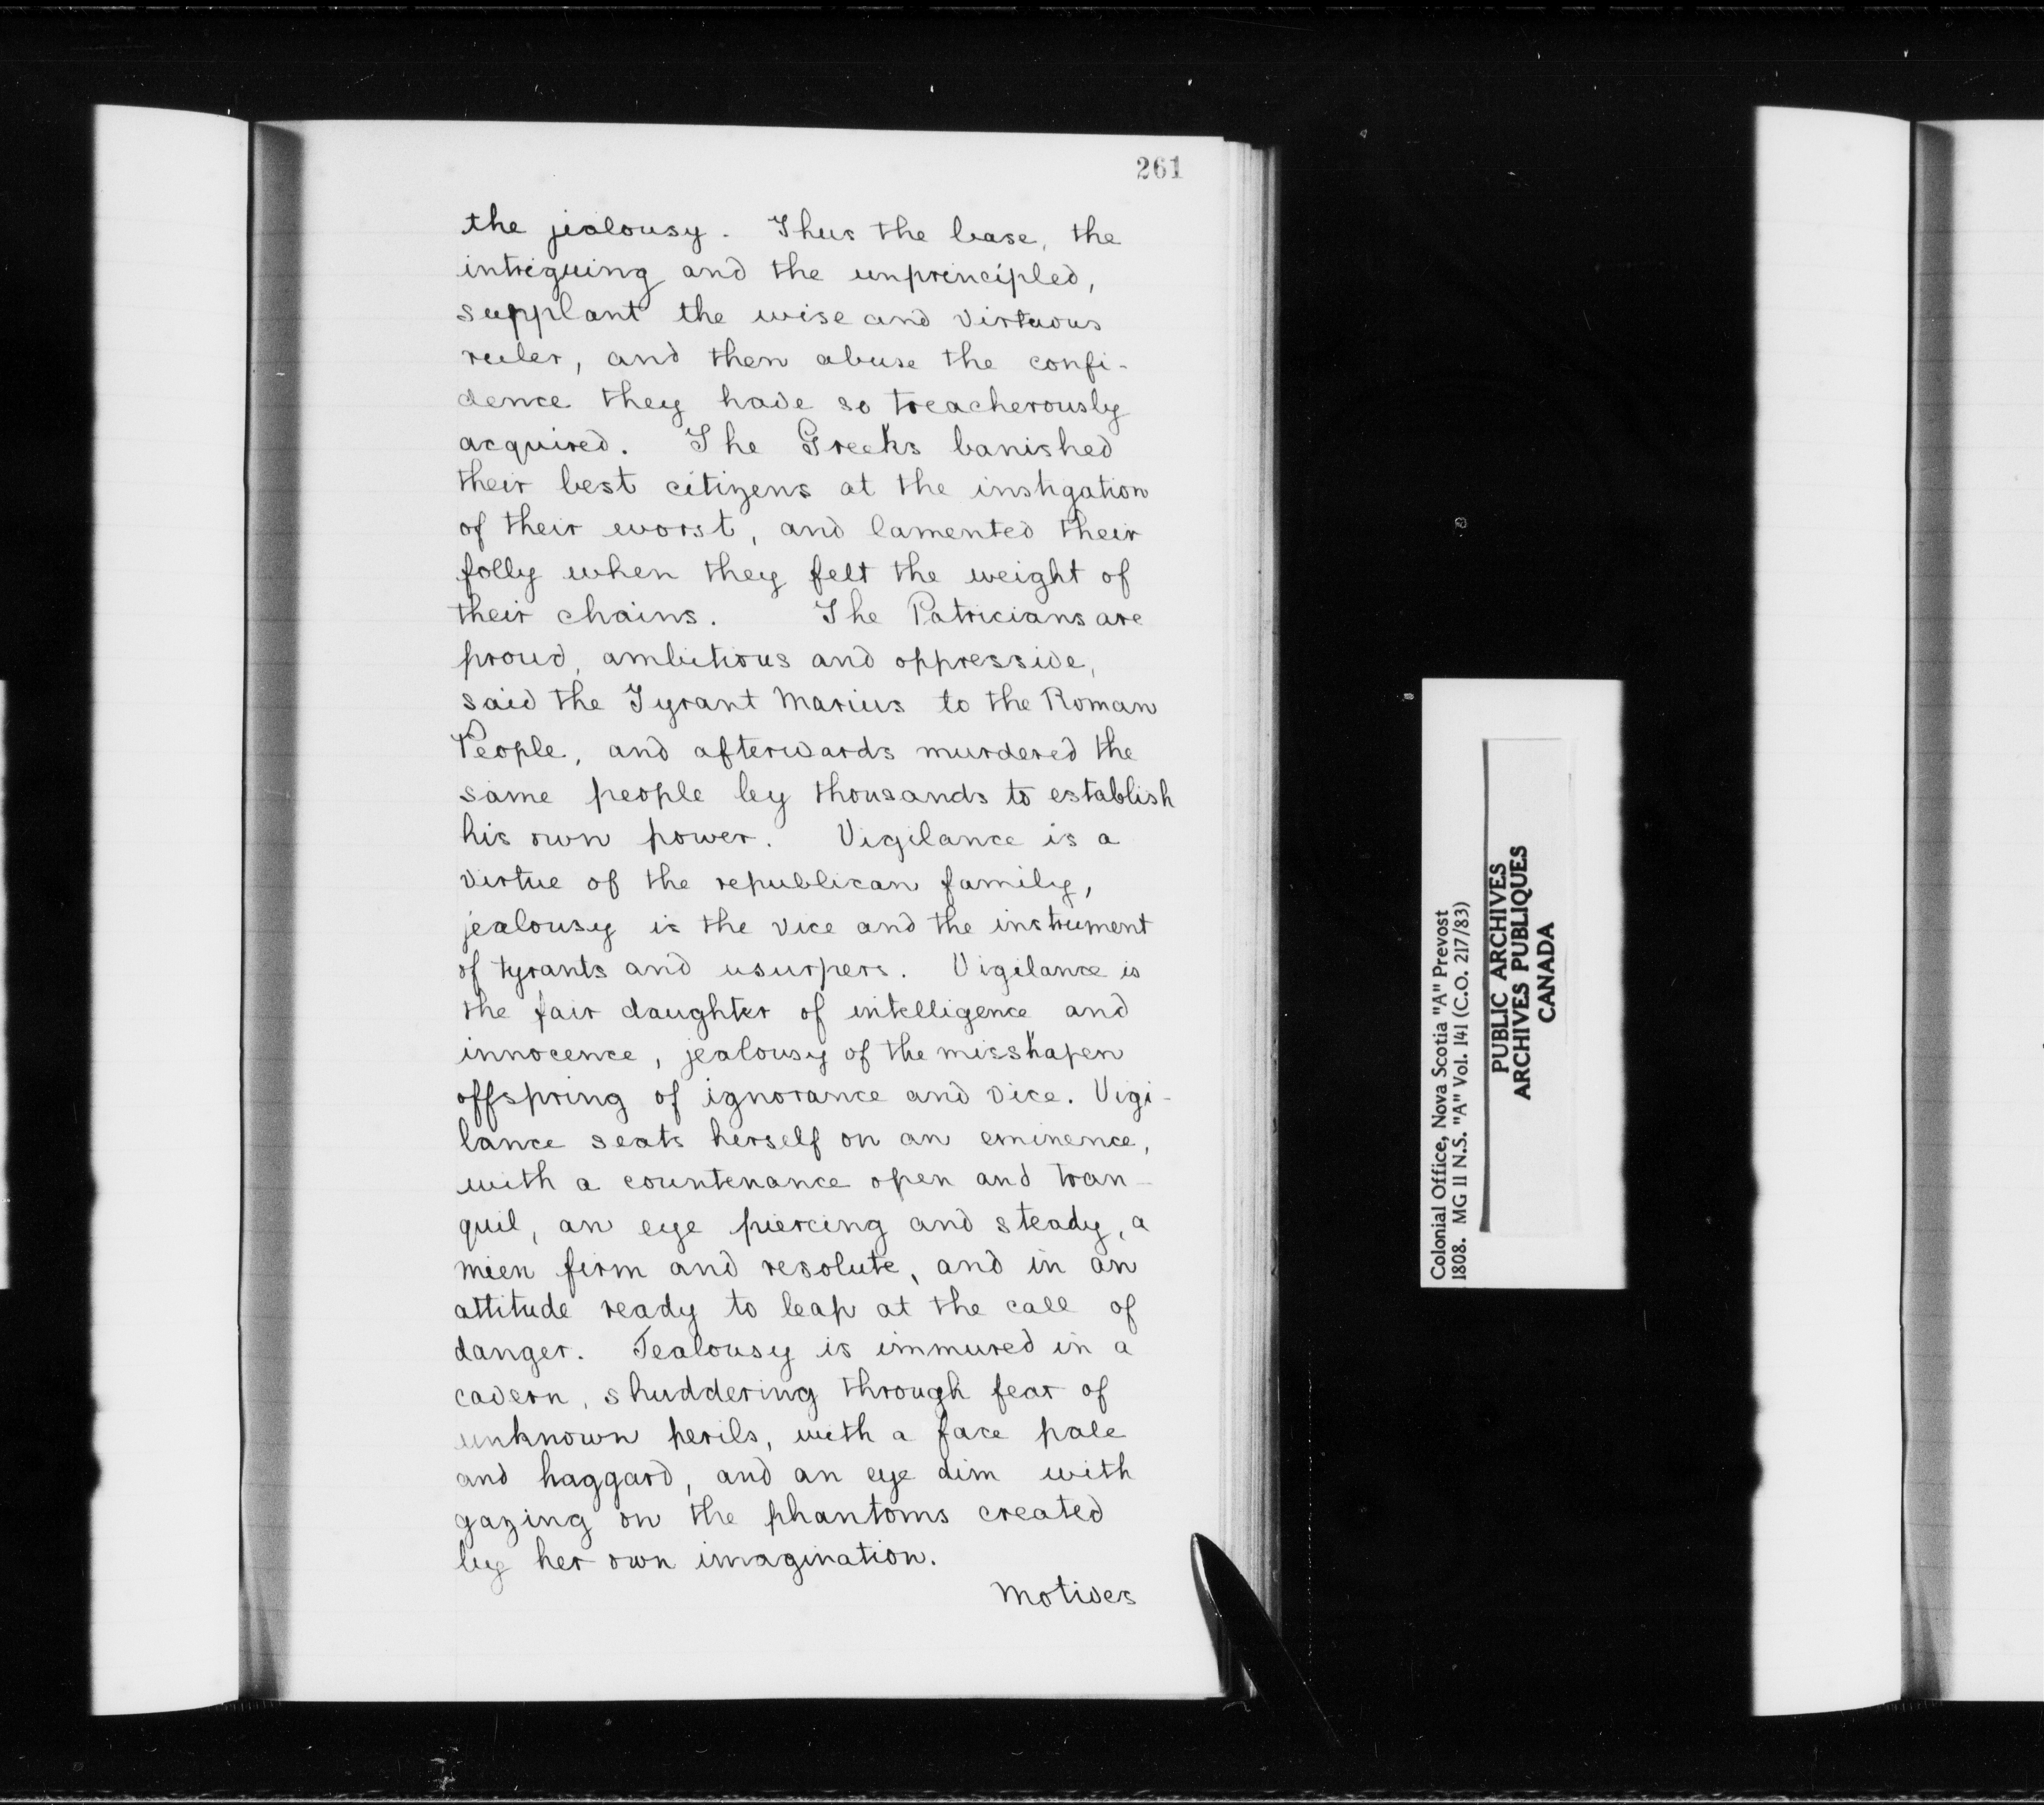 261
the jealousy. Thus the base, the
intriguing and the unprincipled,
supplant the wise and virtuous
ruler, and then abuse the confi-
dence they have so treacherously
acquired. The Greeks banished
their best citizens at the instigation
of their worst, and lamented their
folly when they felt the weight of
their chains. The Patricians are
proud, ambitious and oppressive,
said the Tyrant Marius to the Roman
People, and afterwards murdered the
same people by thousands to establish
his own power. Vigilance is a
virtue of the republican family,
jealousy is the vice and the instrument
of tyrants and usurpers. Vigilance is
the fair daughter of intelligence and
innocence, jealousy of the misshapen
offspring of ignorance and vice. Vigi-
lance seats herself on an eminence,
with a countenance open and tran-
quil, an eye piercing and steady, a
mien firm and resolute, and in an
attitude ready to leap at the call of
danger. Jealousy is immured in a
cavern, shuddering through fear of
unknown perils, with a face pale
and haggard, and an eye dim with
gazing on the phantoms created
by her own imagination.
Motives
Colonial Office, Nova Scotia "A" Prevost
1808. MG 11 N.S. "A" Vol. 141 (C.O. 217/83)
PUBLIC ARCHIVES
ARCHIVES PUBLIQUES
CANADA